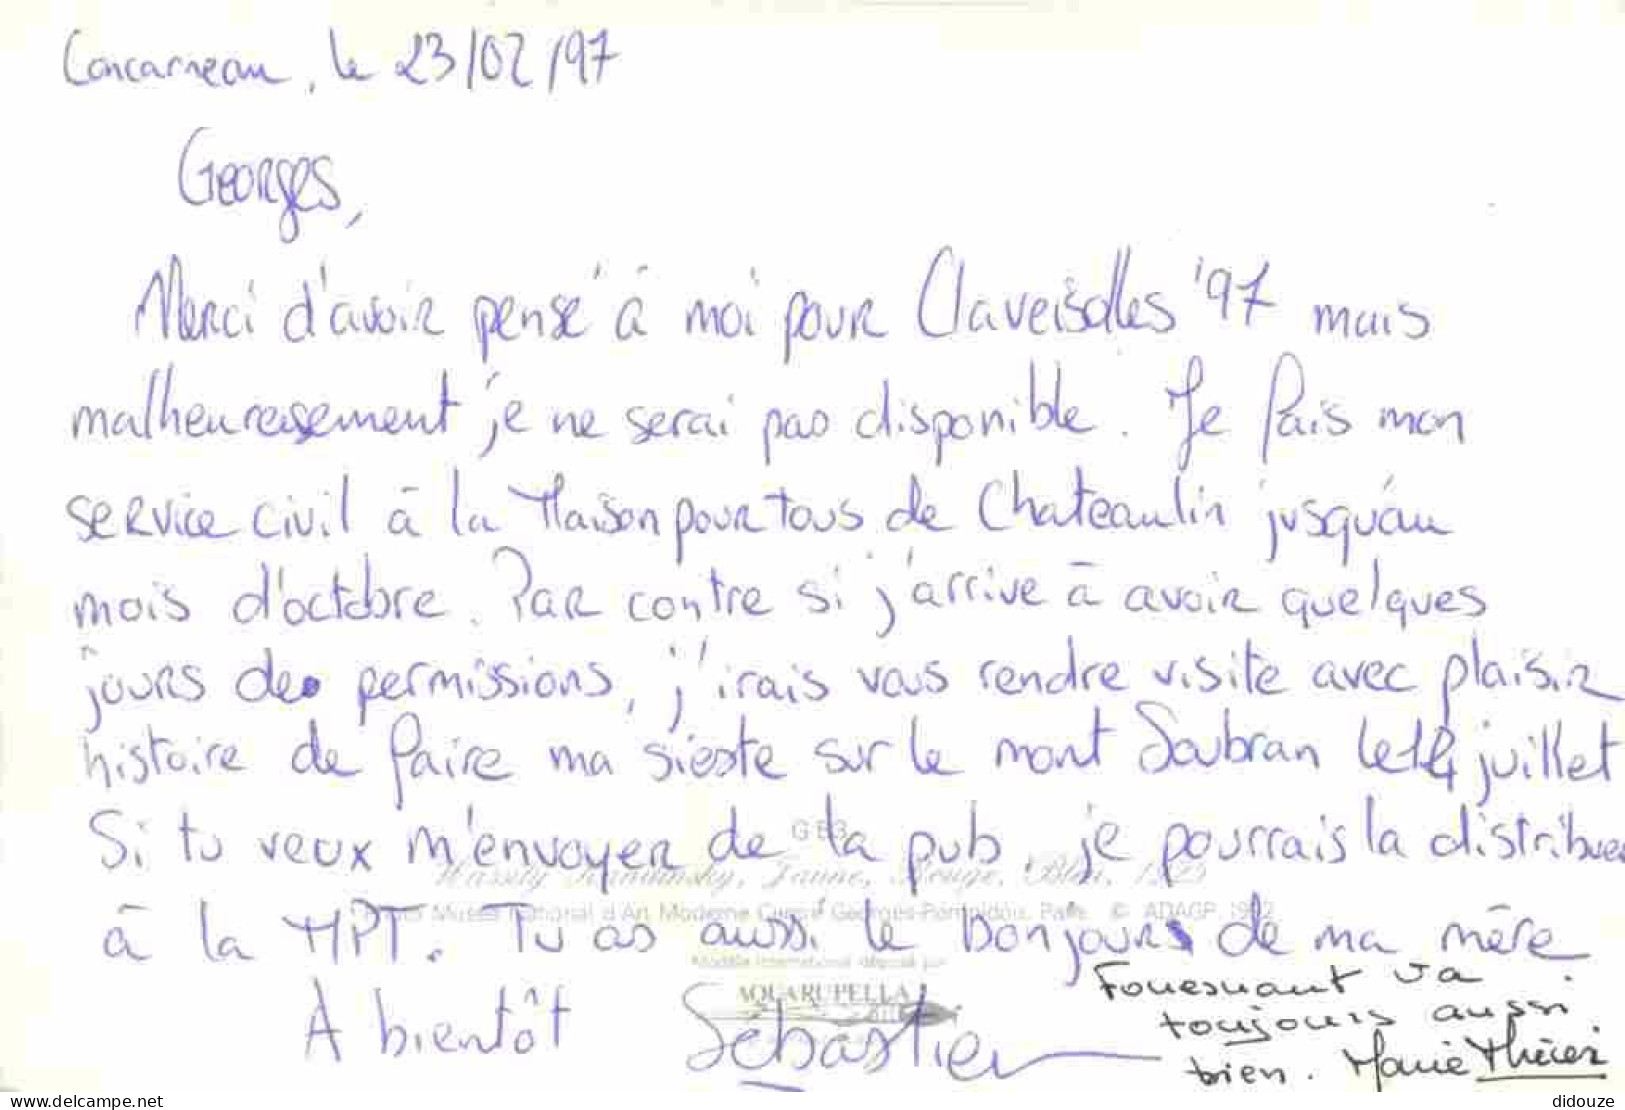 Concarneau, le 23/02/97
Georges,
Merci d'avoir pensé à moi pour Claveisolles '97 mais
malheureusement je ne serai pas disponible. Je fais mon
service civil à la Maison pour tous de Chateaulin jusqu'au
mois d'octobre. Par contre si j'arrive à avoir quelques
jours de permissions, j'irais vous rendre visite avec plaisir
histoire de faire ma sieste sur le mont Soubran le 14 juillet
Si tu veux m'envoyer de la pub, je pourrais la distribuer
Wassily Kandinsky, Jaune, Rouge, Bleu, 1925
Musée National d'Art Moderne Centre Georges-Pompidou, Paris © ADAGP 1992
à la MPT. Tu as aussi le bonjour de ma mère
Modèle international déposé par
AQUARUPELLA
A bientôt Sébastien
Fouesnant va
toujours aussi
bien. Marie Thérèse
delcampe.net
didouze